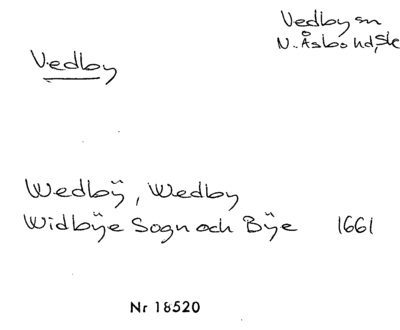 Vedby sn
N. Åsbo hd, Sk
Vedby
Wedbÿ, Wedby
Widbÿe Sogn och Bÿe 1661
Nr 18520